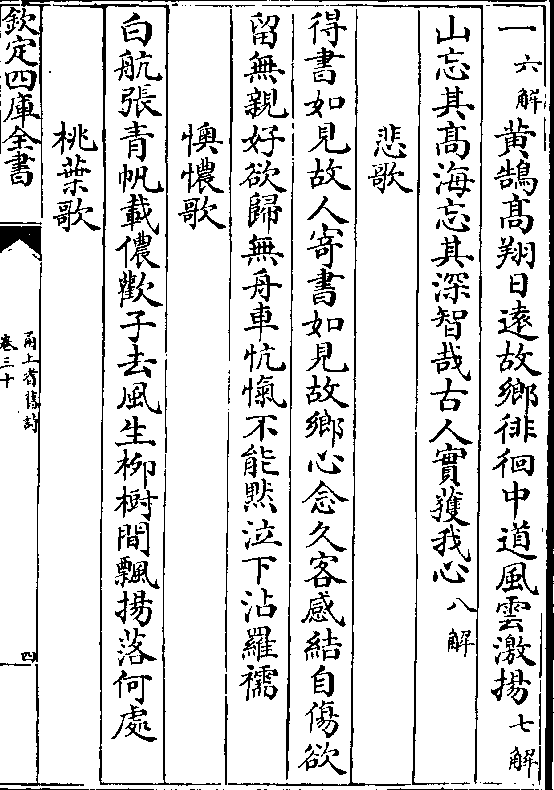 一六解黃鵠髙翔日遠故鄉徘徊中道風雲激揚七解
山忘其髙海忘其深智哉古人實獲我心八解
悲歌
得書如見故人寄書如見故鄉心念久客感結自傷欲
留無親好欲歸無舟車忼愾不能黙泣下沾羅襦
懊憹歌
白航張青帆載儂歡子去風生柳樹間飄揚落何處
桃葉歌
欽定四庫全書
甬上耆舊詩
卷三十
四